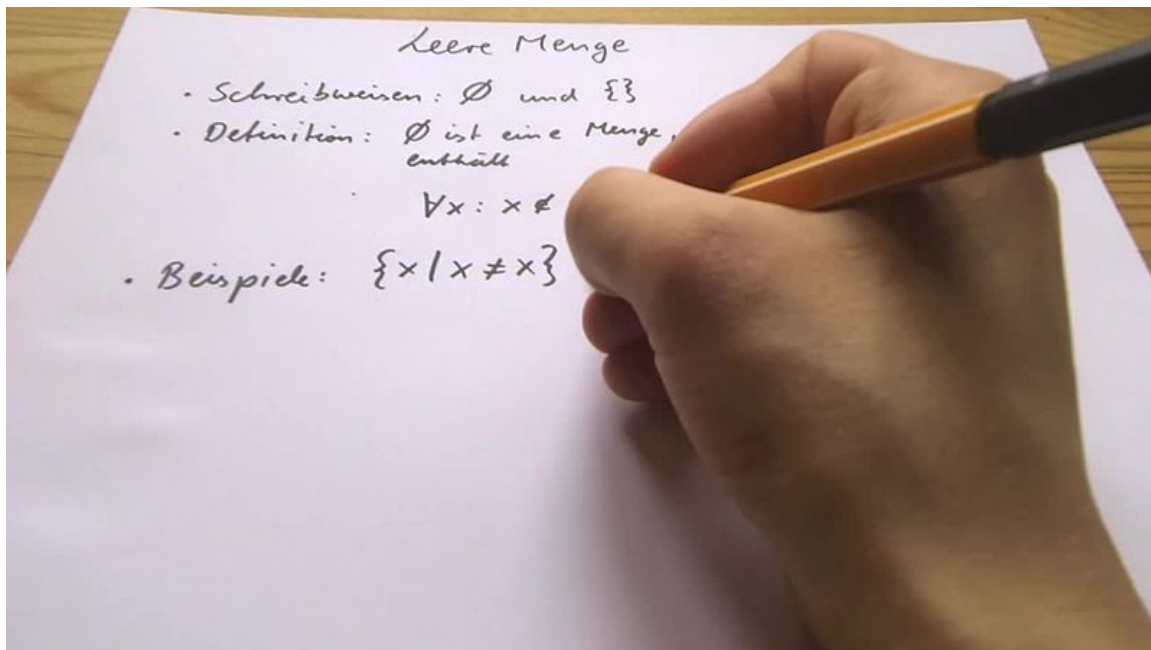 Leere Menge
· Schreibweisen: Ø und {}
· Definition: Ø ist eine Menge,
enthält
∀x: x ∉
· Beispiele: {x | x ≠ x}